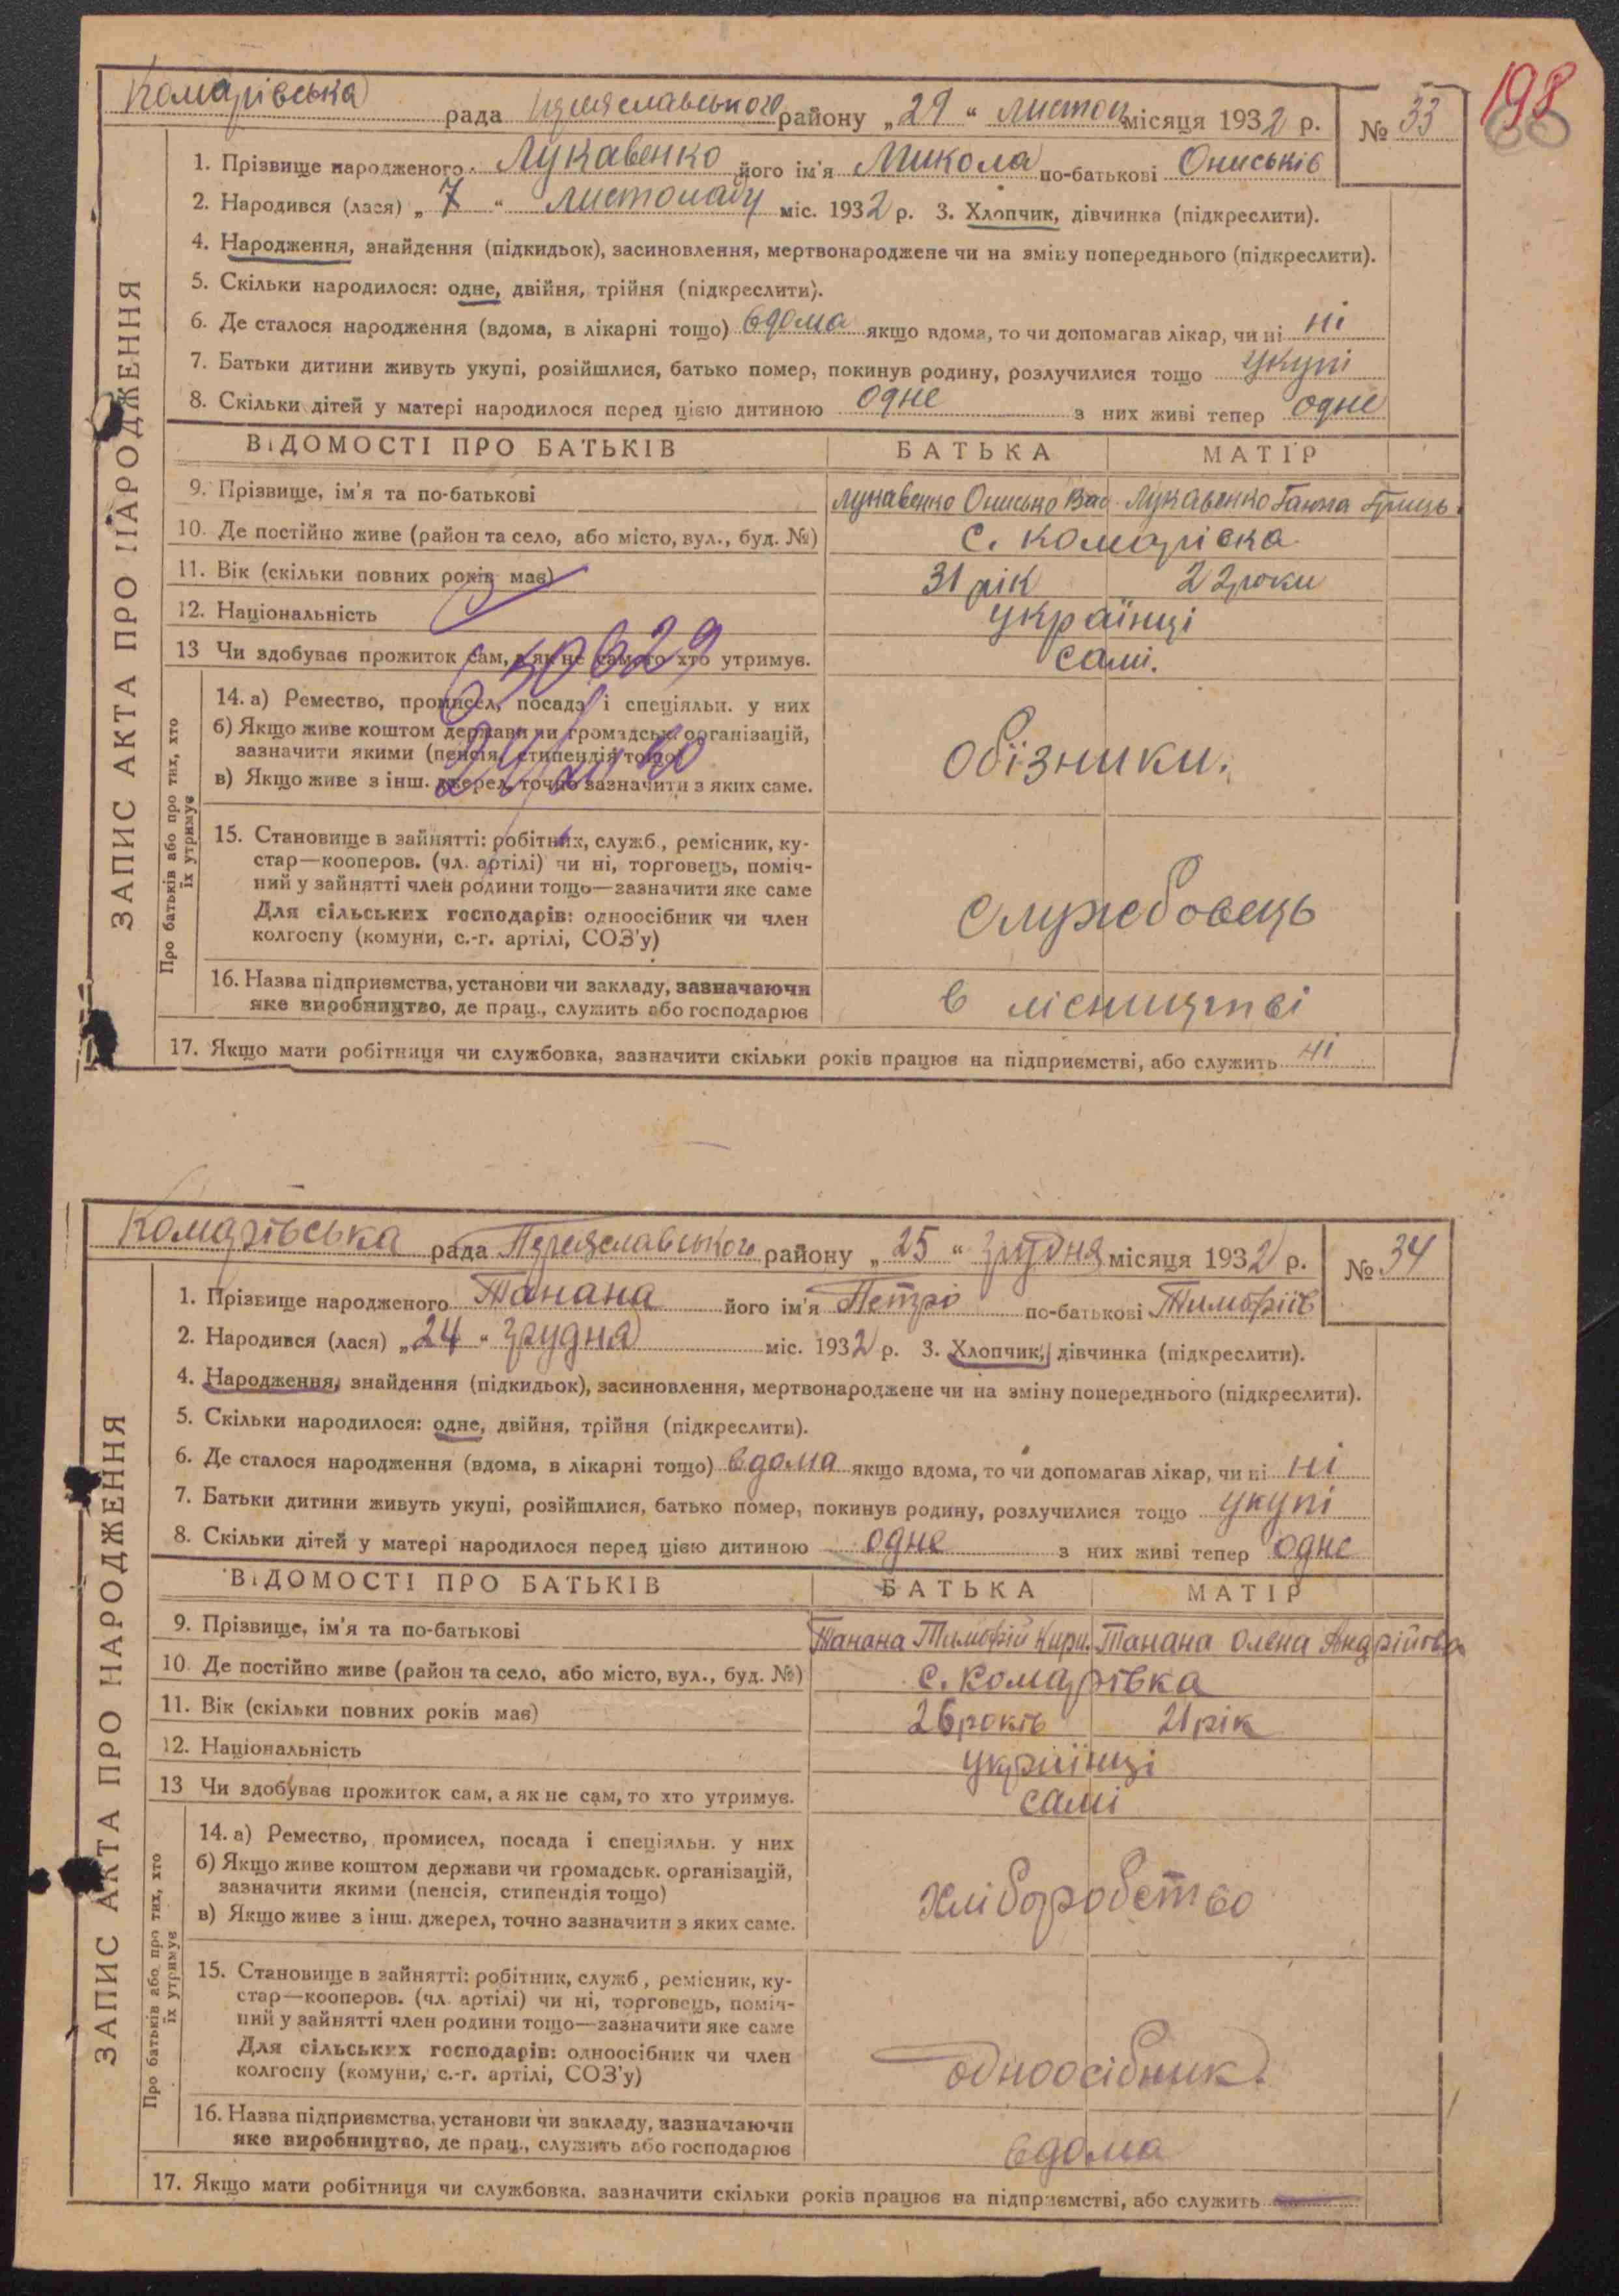 198
Комарівська рада Переяславського району „29“ листоп місяця 1932 р. № 33
1. Прізвище народженого Лукавенко його ім'я Микола по-батькові Ониськів
2. Народився (лася) „7“ листопаду міс. 1932 р. 3. Хлопчик, дівчинка (підкреслити).
4. Народження, знайдення (підкидьок), засиновлення, мертвонароджене чи на зміну попереднього (підкреслити).
5. Скільки народилося: одне, двійня, трійня (підкреслити).
6. Де сталося народження (вдома, в лікарні тощо) вдома якщо вдома, то чи допомагав лікар, чи ні ні
7. Батьки дитини живуть укупі, розійшлися, батько помер, покинув родину, розлучилися тощо укупі
8. Скільки дітей у матері народилося перед цією дитиною одне з них живі тепер одне
ВІДОМОСТІ ПРО БАТЬКІВ БАТЬКА МАТІР
9. Прізвище, ім'я та по-батькові Лукавенко Онисько Вас Лукавенко Ганна Гриць.
10. Де постійно живе (район та село, або місто, вул., буд. №) с. Комарівка
11. Вік (скільки повних років має) 31 рік 22 роки
12. Національність українці
13 Чи здобуває прожиток сам, а як не сам, то хто утримує. самі.
14. а) Ремество, промисел, посада і спеціяльн. у них
б) Якщо живе коштом держави чи громадськ. організацій,
зазначити якими (пенсія, стипендія тощо) обїзники.
в) Якщо живе з інш. джерел, точно зазначити з яких саме.
15. Становище в зайнятті: робітник, служб., ремісник, ку-
стар—кооперов. (чл. артілі) чи ні, торговець, поміч-
ний у зайнятті член родини тощо—зазначити яке саме
Для сільських господарів: одноосібник чи член службовець
колгоспу (комуни, с.-г. артілі, СОЗ'у)
16. Назва підприємства, установи чи закладу, зазначаючи
яке виробництво, де прац., служить або господарює в лісництві
17. Якщо мати робітниця чи службовка, зазначити скільки років працює на підприємстві, або служить ні
ЗАПИС АКТА ПРО НАРОДЖЕННЯ
Про батьків або про тих, хто
їх утримує
Комарівська рада Переяславського району „25“ грудня місяця 1932 р. № 34
1. Прізвище народженого Танана його ім'я Петро по-батькові Тимофіїв
2. Народився (лася) „24“ грудня міс. 1932 р. 3. Хлопчик, дівчинка (підкреслити).
4. Народження, знайдення (підкидьок), засиновлення, мертвонароджене чи на зміну попереднього (підкреслити).
5. Скільки народилося: одне, двійня, трійня (підкреслити).
6. Де сталося народження (вдома, в лікарні тощо) вдома якщо вдома, то чи допомагав лікар, чи ні ні
7. Батьки дитини живуть укупі, розійшлися, батько помер, покинув родину, розлучилися тощо укупі
8. Скільки дітей у матері народилося перед цією дитиною одне з них живі тепер одне
ВІДОМОСТІ ПРО БАТЬКІВ БАТЬКА МАТІР
9. Прізвище, ім'я та по-батькові Танана Тимофій Кири. Танана Олена Андрійовна
10. Де постійно живе (район та село, або місто, вул., буд. №) с. Комарівка
11. Вік (скільки повних років має) 26 років 21 рік
12. Національність українці
13 Чи здобуває прожиток сам, а як не сам, то хто утримує. самі
14. а) Ремество, промисел, посада і спеціяльн. у них
б) Якщо живе коштом держави чи громадськ. організацій,
зазначити якими (пенсія, стипендія тощо) хліборобство
в) Якщо живе з інш. джерел, точно зазначити з яких саме.
15. Становище в зайнятті: робітник, служб., ремісник, ку-
стар—кооперов. (чл. артілі) чи ні, торговець, поміч-
ний у зайнятті член родини тощо—зазначити яке саме
Для сільських господарів: одноосібник чи член
колгоспу (комуни, с.-г. артілі, СОЗ'у) одноосібник.
16. Назва підприємства, установи чи закладу, зазначаючи
яке виробництво, де прац., служить або господарює вдома
17. Якщо мати робітниця чи службовка, зазначити скільки років працює на підприємстві, або служить
ЗАПИС АКТА ПРО НАРОДЖЕННЯ
Про батьків або про тих, хто
їх утримує